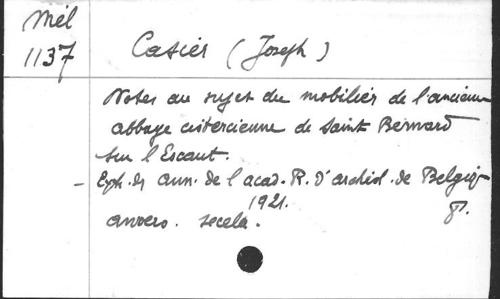 Mél
1137
Casier (Joseph)
Notes au sujet du mobilier de l'ancienne
abbaye cistercienne de Saint Bernard
sur l'Escaut.
- Exph. de ann. de l'acad. R. d'archéol. de Belgiq
1921.
anvers. secela. 8°.